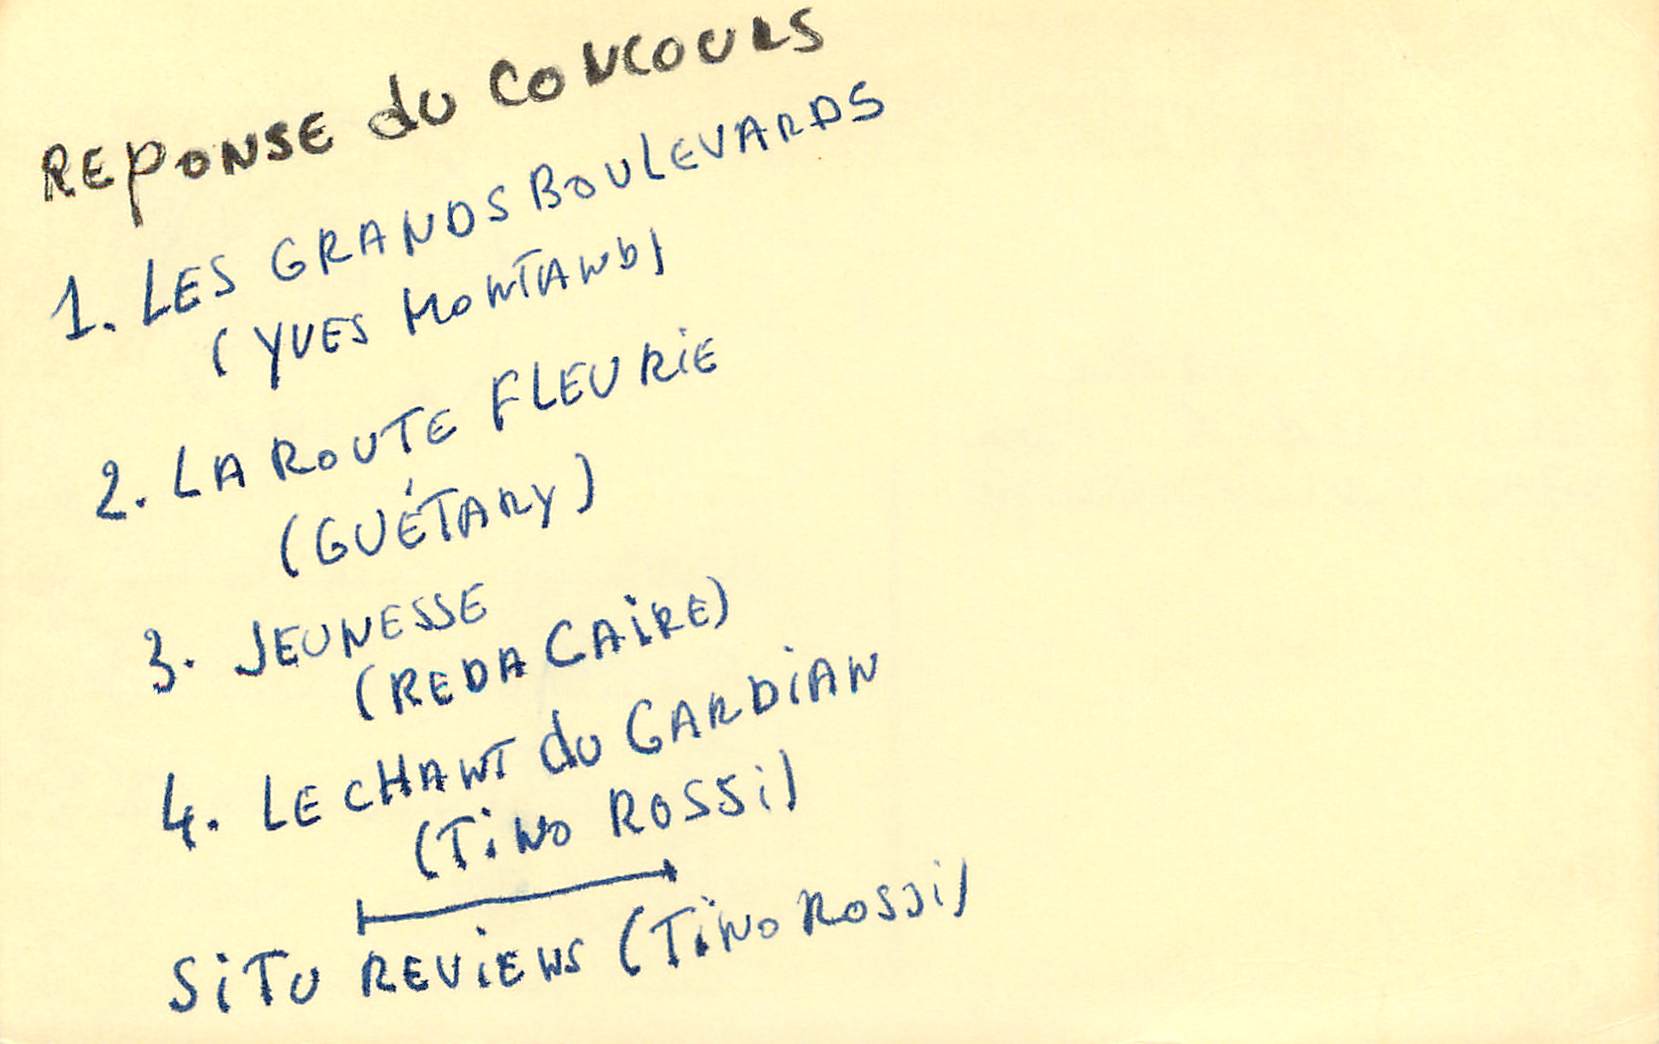 REPONSE du CONCOURS
1. LES GRANDS BOULEVARDS
(YVES MONTAND)
2. LA ROUTE FLEURIE
(GUÉTARY)
3. JEUNESSE
(REDA CAIRE)
4. LE CHANT du GARDIAN
(TiNO ROSSi)
SiTU REViENS (TiNO ROSSi)